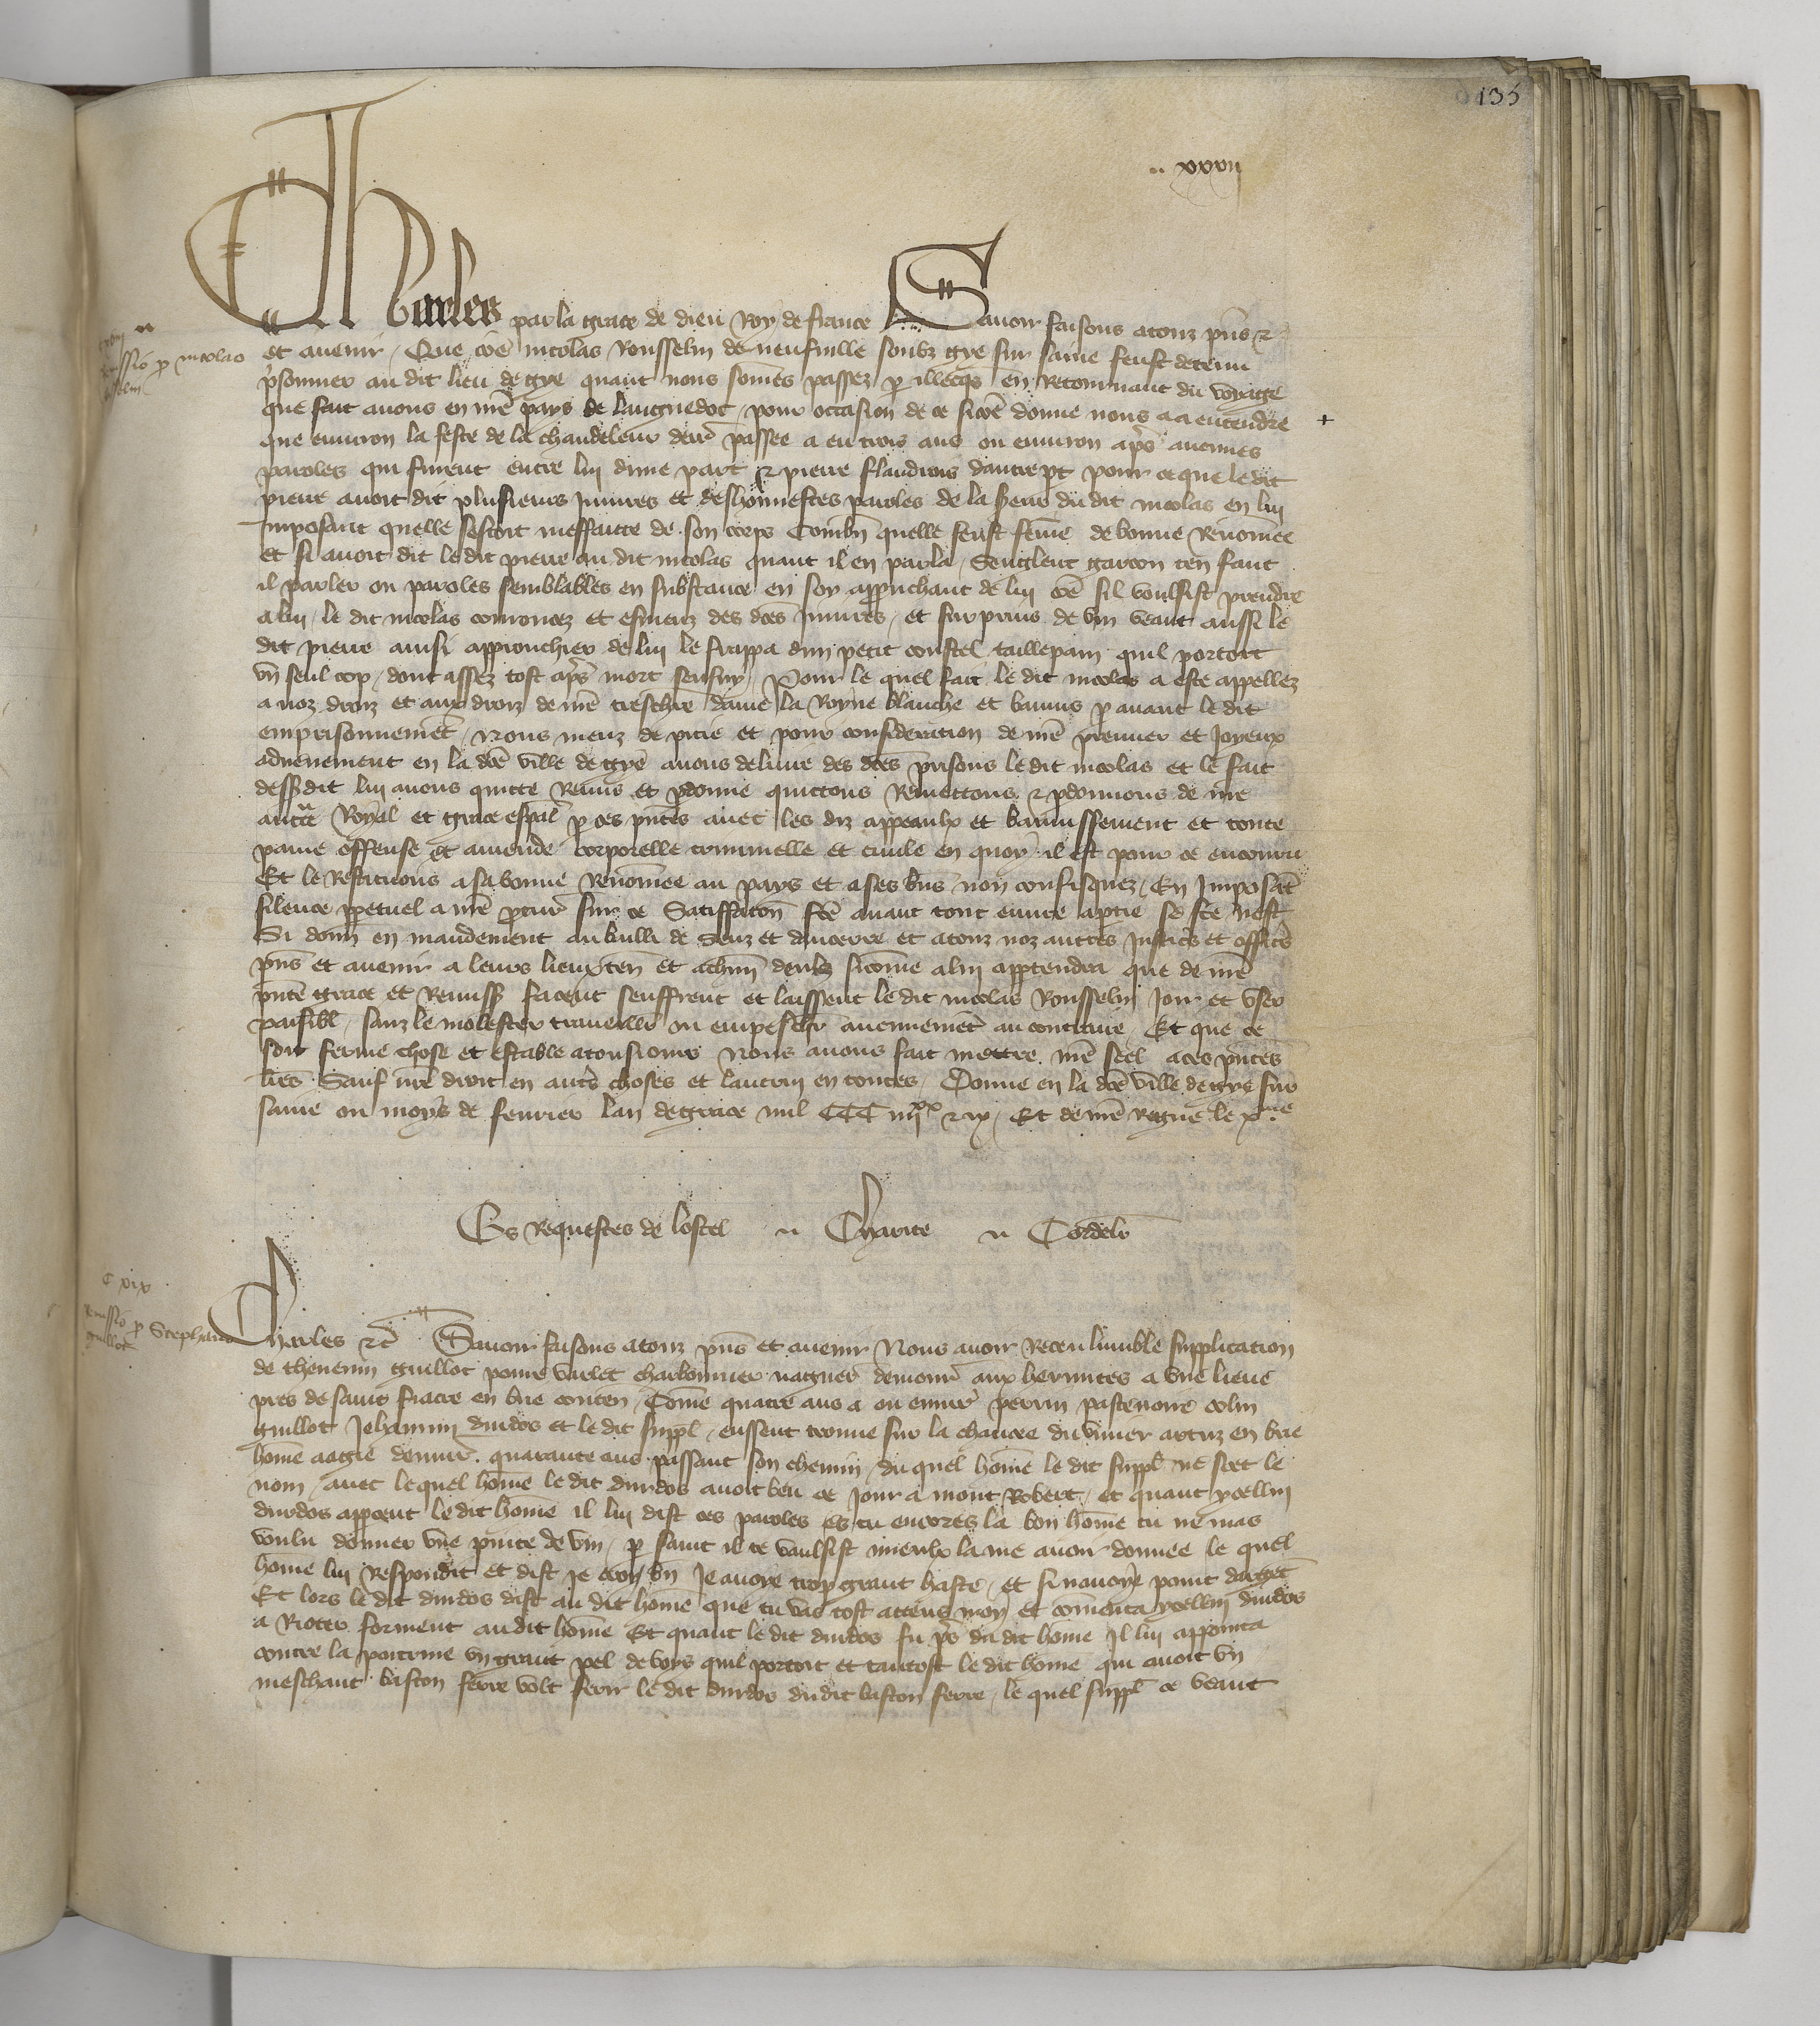 135
xxxii
Charles par la grace de dieu Roy de france Savoir faisons a touz pñs &
et avenir Que cõe nicolas Rousselin de neufville soubz gye sur saine feust detenu
p̃sonnier au dit lieu de gye quant nous somẽs passez p illecqs en Retournant du voyage
que fait avons en nr̃e pays de languedoc pour occasion de ce sicõe donne nous a a entendre
que environ la feste de la chandeleur derr̃ passee a eu trois ans ou environ ap̃s aucunes
paroles qui furent entre lui dune part & pierre flandrois dautre pt pour ce que le dit
pierre avoit dit plusieurs Iniures et deshonnestes paroles de la seur du dit nicolas en lui
Imposant quelle sestoit meffaitte de son corps Combñ quelle feust fem̃e de bonne Renom̃ee
et si avoit dit le dit pierre au dit nicolas quant il en parla Senglent garcon ten faut
il parler ou paroles semblables en substance en soy aprouchant de lui cõe sil voulsist prendre
a lui le dit nicolas courroucez et esmeuz des dc̃es Iniures et surprins de vin veant aussi le
dit pierre ainsi approuchier de lui le frappa dun petit coustel taillepain quil portoit
vñ seul cop dont assez tost ap̃s mort sensuy Pour le quel fait le dit nicolas a este appellez
a noz droiz et aux droiz de nr̃e treschiere dame la Royne blanche et banniz p avant le dit
emprisonnemẽt Nous meuz de pitie et pour consideracion de nr̃e premier et Joyeux
advenement en la dc̃e ville de gye avons delivre des dc̃es prisons le dit nicolas et le fait
dessusdit lui avons quitte Remis et pdonne quittons Remettons & pdonnons de nr̃e
auctẽ Royal et grace esp̃al p ces pñtes avec les diz appeaulx et bannissement et toute
paine offense et amende corporelle criminelle et civile en quoy il est pour ce encouru
Et le Restituons a sa bonne Renom̃ee au pays et a ses biẽs non confisquez En Imposãt
silence ppetuel a nr̃e pcur̃ sur ce Satiffacõn fc̃e avant tout euvre a ptie se fc̃e nest
Si donñ en mandement au bailli de Senz et daucerre et a touz noz autres Justic̃s et offic̃s
pñs et avenir a leurs lieuxteñ et a chũn deulx sicom̃e a lui apptendra que de nr̃e
pñte grace et Remiss̃ facent seuffrent et laissent le dit nicolas Rousselin Joir et vser
paisiblẽ sanz le molester travaillr̃ ou empeschr̃ aucunemẽt au contraire Et que ce
soit ferme chose et estable a tousiours Nous avons fait mettre nr̃e seel a ces pñtes
lr̃es Sauf nr̃e droit en autr̃s choses et lautruy en toutes Donne en la dc̃e ville de gye sur
saine ou moys de fevrier lan de grace mil CCC iiij xx & ix Et de nr̃e regne le x.me
Es Requestes de lostel Charite Cordelr̃
C xix
Remissio p Stephano
guillot
Charles &c̃ Savoir faisons a touz pñs et avenir Nous avoir Receu lumble supplicacion
de thevenin guillot povre varlet charbonnier nagueres demour̃ aux hermites a vne lieue
pres de saint fiacre en brie conteñ Com̃e quatre ans a ou envir̃ perrin pastenoue colin
guillot Jehannin durdos et le dit suppl̃ eussent trouve sur la chaucee du vivier artuz en brie
hom̃e aagie denvir̃ quarante ans passant son chemin du quel hom̃e le dit suppl̃ ne scet le
nom avec le quel hom̃e le dit durdos avoit beu ce Jour a mont Robert et quant ycellui
durdos appceut le dit home il lui dist ces paroles es tu encores la bon hom̃e tu ne mas
voulu donner vne pinte de vin p saint il te vaulsist mieulx la me avoir donnee le quel
home lui Respondit et dist Je croy bñ Je avoye trop grant haste et si navoye point dargẽt
Et lors le dit durdos dist au dit home que tu vas tost attens moy et com̃enca ycellui durdos
a Riotter forment au dit home Et quant le dit durdos fu p̃s du dit home Il lui appointa
contre la poitrine vn grant pel de boys quil portoit et tantost le dit home qui avoit vn
meschant baston ferre volt ferir le dit durdos du dit baston ferre le quel suppl̃ ce veant